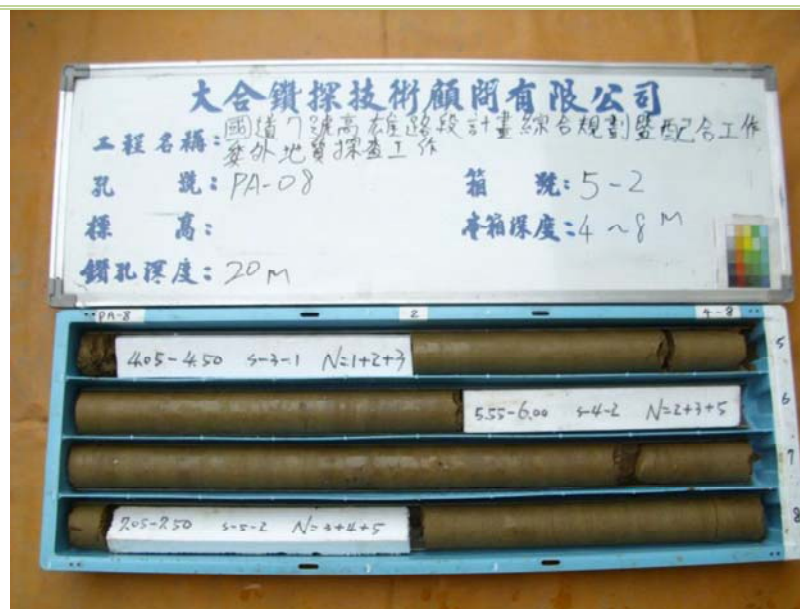 大合鑽探技術顧問有限公司
工程名稱:國道7號高雄路段計畫綜合規劃暨配合工作
委外地質探查工作
孔號:PA-08 箱號:5-2
標高: 本箱深度:4~8M
鑽孔深度:20M
PA-8 2 4-8
4.05-4.50 S-3-1 N=1+2+3 5
5.55-6.00 S-4-2 N=2+3+5 6
7
7.05-7.50 S-5-2 N=3+4+5 8